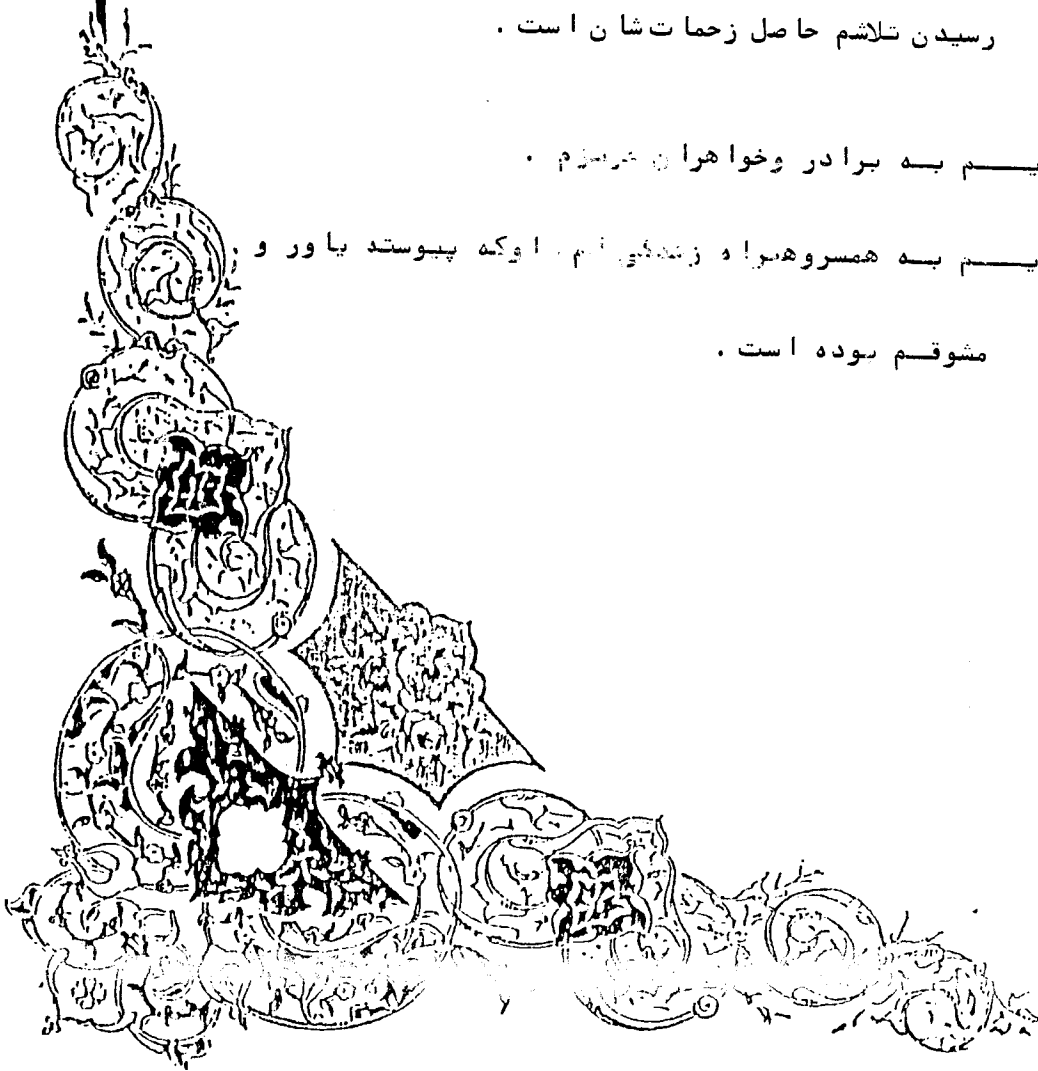 رسیدن تلاشم حاصل زحمات‌شان است .
یم به برادر وخواهران عزیزم .
یم به همسروهمراه زندگی ام . اوکه پیوسته یاور و
مشوقم بوده است .